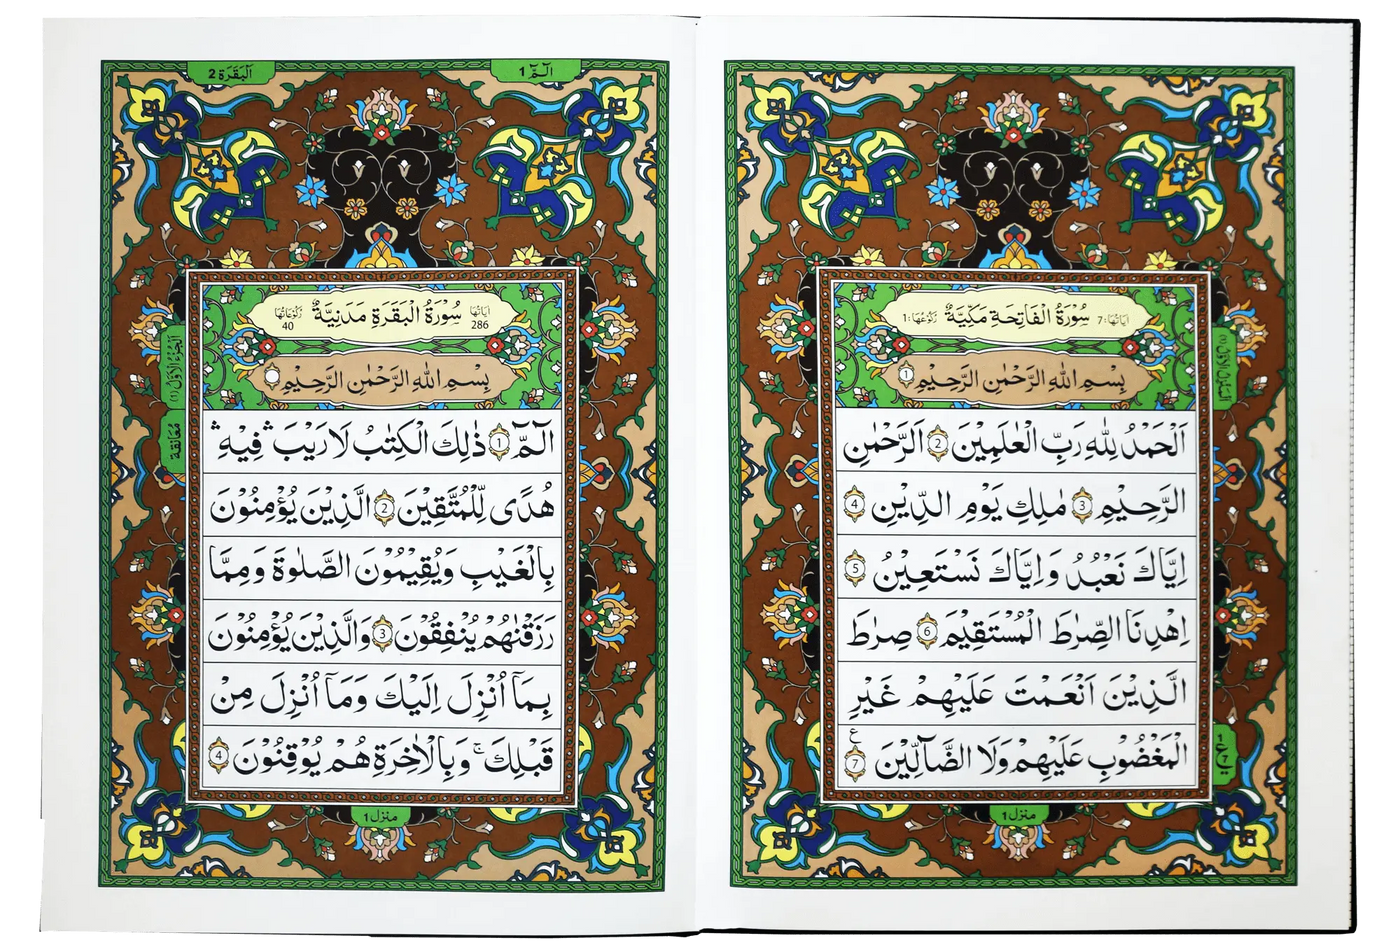 اٰیَاتُهَا: 7 سُوْرَةُ الْفَاتِحَةِ مَكِّیَّةٌ رُكُوْعُهَا: 1
بِسْمِ اللّٰهِ الرَّحْمٰنِ الرَّحِیْمِ 1
اَلْحَمْدُ لِلّٰهِ رَبِّ الْعٰلَمِیْنَ 2 الرَّحْمٰنِ
الرَّحِیْمِ 3 مٰلِكِ یَوْمِ الدِّیْنِ 4
اِیَّاكَ نَعْبُدُ وَ اِیَّاكَ نَسْتَعِیْنُ 5
اِهْدِنَا الصِّرَاطَ الْمُسْتَقِیْمَ 6 صِرَاطَ
الَّذِیْنَ اَنْعَمْتَ عَلَیْهِمْ غَیْرِ
الْمَغْضُوْبِ عَلَیْهِمْ وَلَا الضَّآلِّیْنَ 7 ع
1
ع
7
منزل 1
الٓمّٓ 1
اَلْبَقَرَة 2
اٰیَاتُهَا 286 سُوْرَةُ الْبَقَرَةِ مَدَنِیَّةٌ رُكُوْعَاتُهَا 40
بِسْمِ اللّٰهِ الرَّحْمٰنِ الرَّحِیْمِ
الٓمّٓ 1 ذٰلِكَ الْكِتٰبُ لَا رَیْبَ ۛ فِیْهِ ۛ
هُدًی لِّلْمُتَّقِیْنَ 2 الَّذِیْنَ یُؤْمِنُوْنَ
بِالْغَیْبِ وَیُقِیْمُوْنَ الصَّلٰوةَ وَ مِمَّا
رَزَقْنٰهُمْ یُنْفِقُوْنَ 3 وَالَّذِیْنَ یُؤْمِنُوْنَ
بِمَاۤ اُنْزِلَ اِلَیْكَ وَ مَاۤ اُنْزِلَ مِنْ
قَبْلِكَ ۚ وَ بِالْاٰخِرَةِ هُمْ یُوْقِنُوْنَ 4
اَلْجُزْءُ الْاَوَّلُ (1)
مُعَانَقَة
منزل 1